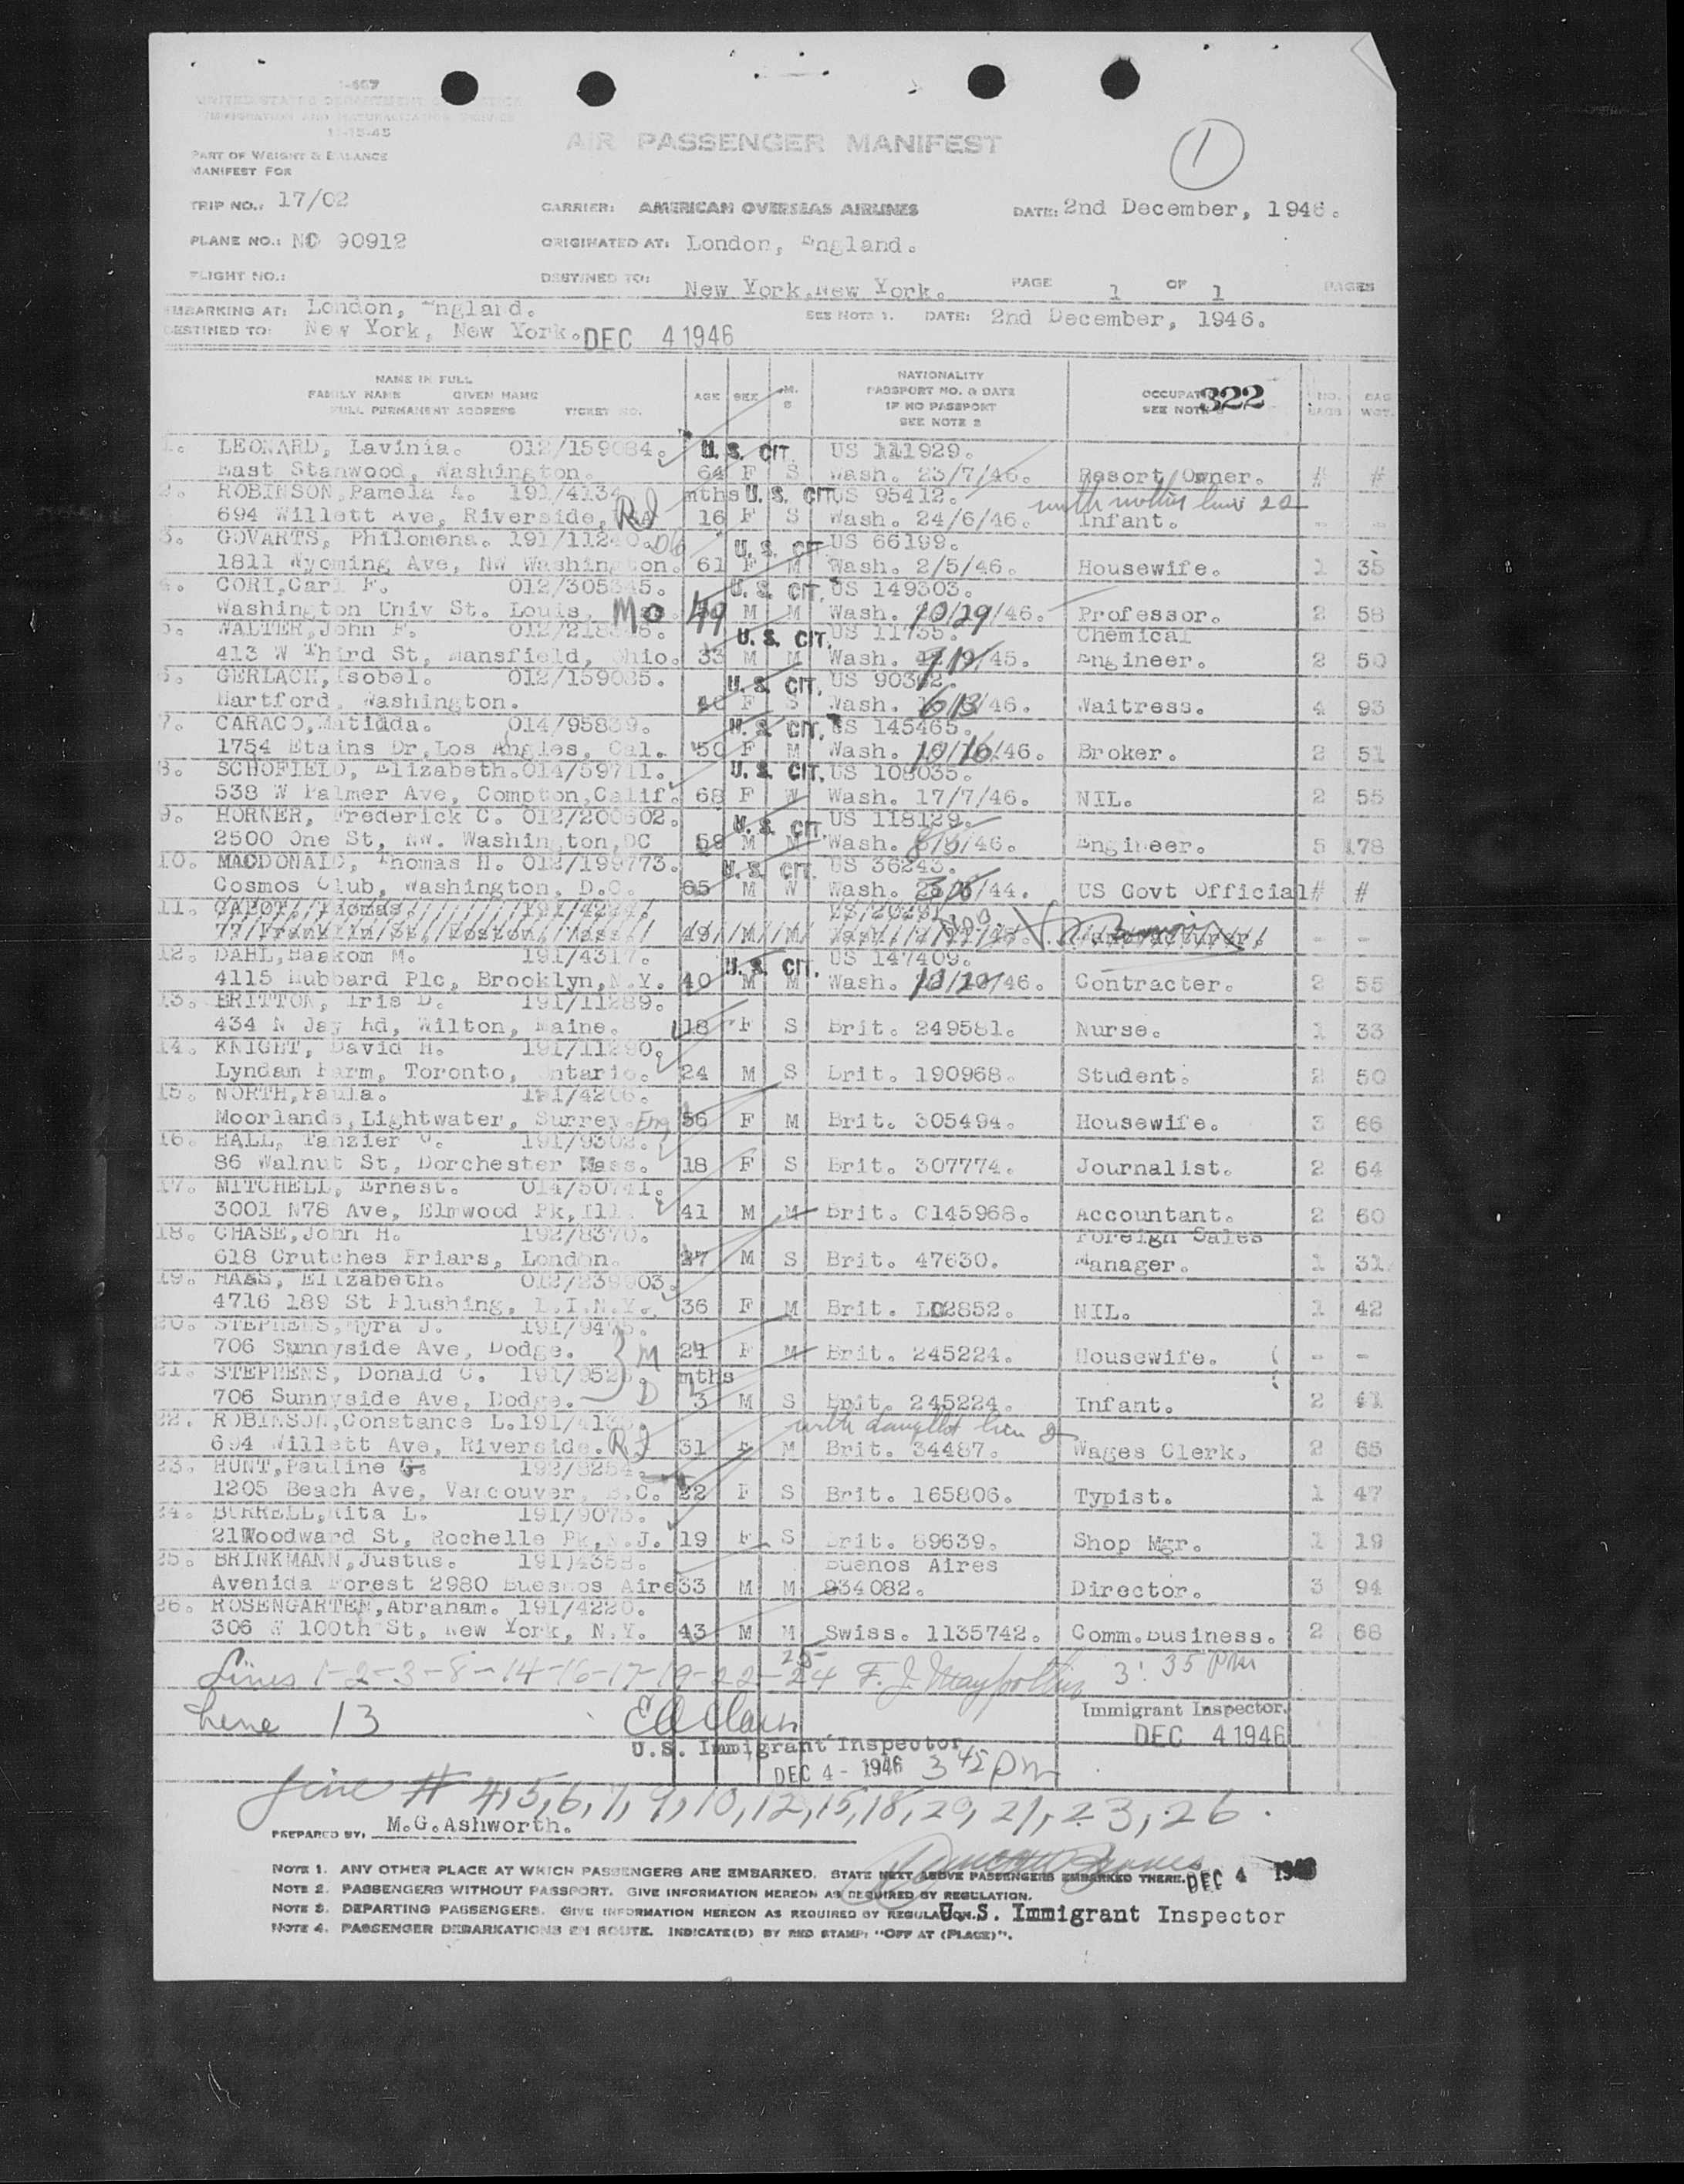 I-667
UNITED STATES DEPARTMENT OF JUSTICE
IMMIGRATION AND NATURALIZATION SERVICE
11-15-45
PART OF WEIGHT & BALANCE
MANIFEST FOR
AIR PASSENGER MANIFEST
1
TRIP NO.: 17/02 CARRIER: AMERICAN OVERSEAS AIRLINES DATE: 2nd December, 1946.
PLANE NO.: NC 90912 ORIGINATED AT: London, England.
FLIGHT NO.: DESTINED TO: New York,New York. PAGE 1 OF 1 PAGES
EMBARKING AT: London, England. SEE NOTE 1. DATE: 2nd December, 1946.
DESTINED TO: New York, New York. DEC 4 1946
NAME IN FULL
FAMILY NAME GIVEN NAME
FULL PERMANENT ADDRESS TICKET NO. AGE SEX M. S NATIONALITY PASSPORT NO. & DATE IF NO PASSPORT SEE NOTE 2 OCCUPAT SEE NOTE 322 NO. BAGS BAG WGT.
1. LEONARD, Lavinia. 012/159084. U.S. CIT. US 111929.
East Stanwood, Washington. 64 F S Wash. 23/7/46. Resort Owner. # #
2. ROBINSON,Pamela A. 191/4134 mths U.S. CIT. US 95412. with mother line 22
694 Willett Ave, Riverside, RI 16 F S Wash. 24/6/46. Infant. - -
3. GOVARTS, Philomena. 191/11240. U.S. CIT. US 66199.
1811 Wyoming Ave, NW Washington. 61 F M Wash. 2/5/46. Housewife. 1 35
4. CORI,Carl F. 012/305345. U.S. CIT. US 149303.
Washington Univ St. Louis, Mo 49 M M Wash. 10/29/46. Professor. 2 58
5. WALTER,John F. U.S. CIT. US 11755. Chemical
413 W Third St, Mansfield, Ohio. 33 M M Wash. 45. Engineer. 2 50
6. GERLACH,Isobel. 012/159085. U.S. CIT. US 90362.
Hartford, Washington. F S Wash. 6/13/46. Waitress. 4 93
7. CARACO,Matidda. 014/95839. U.S. CIT. US 145465.
1754 Etains Dr,Los Angles, Cal. 50 F M Wash. 10/16/46. Broker. 2 51
8. SCHOFIELD, Elizabeth.014/59711. U.S. CIT. US 108035.
538 W Palmer Ave, Compton,Calif. 68 F W Wash. 17/7/46. NIL. 2 55
9. HORNER, Frederick C. 012/200602. U.S. CIT. US 118129.
2500 Que St, NW. Washington,DC 58 M M Wash. 46. Engineer. 5 178
10. MACDONALD, Thomas H. 012/199773. U.S. CIT. US 36243.
Cosmos Club, Washington, D.C. 65 M W Wash. 44. US Govt Official # #
11. CABOT, Thomas. US
77 Franklin St, Boston, Mass. 49 M M - -
12. DAHL,Haakom M. 191/4317. U.S. CIT. US 147409.
4115 Hubbard Plc, Brooklyn,N.Y. 40 M M Wash. 46. Contracter. 2 55
13. BRITTON, Iris D. 191/11289.
434 N Jay Rd, Wilton, Maine. 18 F S Brit. 249581. Nurse. 1 33
14. KNIGHT, David H. 191/11290.
Lyndam Farm, Toronto, Ontario. 24 M S Brit. 190968. Student. 2 50
15. NORTH,Paula. 191/4206.
Moorlands,Lightwater, Surrey. Eng 56 F M Brit. 305494. Housewife. 3 66
16. HALL, Tanzier 191/9302.
86 Walnut St, Dorchester Mass. 18 F S Brit. 307774. Journalist. 2 64
17. MITCHELL, Ernest. 014/50741.
3001 N78 Ave, Elmwood Pk,Ill. 41 M M Brit. C145968. Accountant. 2 60
18. CHASE,John H. 192/8370. Foreign Sales
618 Crutches Friars, London. 27 M S Brit. 47630. Manager. 1 31
19. HAAS, Elizabeth. 012/239903.
4716 189 St Flushing, L.I.N.Y. 36 F M Brit. L02852. NIL. 1 42
20. STEPHENS,Myra J. 191/9475.
706 Sunnyside Ave, Dodge. 24 F M Brit. 245224. Housewife. ( - -
21. STEPHENS, Donald C. mths
706 Sunnyside Ave, Dodge. 3 M S Brit. 245224. Infant. 2 41
22. ROBINSON,Constance L. with daughter line 2
694 Willett Ave, Riverside. RI 31 F M Brit. 34487. Wages Clerk. 2 65
23. HUNT,Pauline G.
1205 Beach Ave, Vancouver, B.C. 22 F S Brit. 165806. Typist. 1 47
24. BURRELL,Rita L. 191/9073.
21Woodward St, Rochelle Pk,N.J. 19 F S Brit. 89639. Shop Mgr. 1 19
25. BRINKMANN,Justus. 191)4358. Buenos Aires
Avenida Forest 2980 Buesnos Aire 33 M M 934082. Director. 3 94
26. ROSENGARTEN,Abraham. 191/4220.
306 W 100th St, New York, N.Y. 43 M M Swiss. 1135742. Comm.Business. 2 68
Lines 1-2-3-8-14-16-17-19-22-24 25 F. J. 3:35 PM
Immigrant Inspector.
Line 13 DEC 4 1946
U.S. Immigrant Inspector
DEC 4 - 1946 3 45 pm
Line # 4,5,6,7,9,10,12,15,18,20,21,23,26.
PREPARED BY, M.G.Ashworth.
NOTE 1. ANY OTHER PLACE AT WHICH PASSENGERS ARE EMBARKED. STATE NEXT ABOVE PASSENGERS EMBARKED THERE. DEC 4 1946
NOTE 2. PASSENGERS WITHOUT PASSPORT. GIVE INFORMATION HEREON AS REQUIRED BY REGULATION.
NOTE 3. DEPARTING PASSENGERS. GIVE INFORMATION HEREON AS REQUIRED BY REGULATION. U.S. Immigrant Inspector
NOTE 4. PASSENGER DEBARKATIONS EN ROUTE. INDICATE(D) BY RED STAMP: "OFF AT (PLACE)".